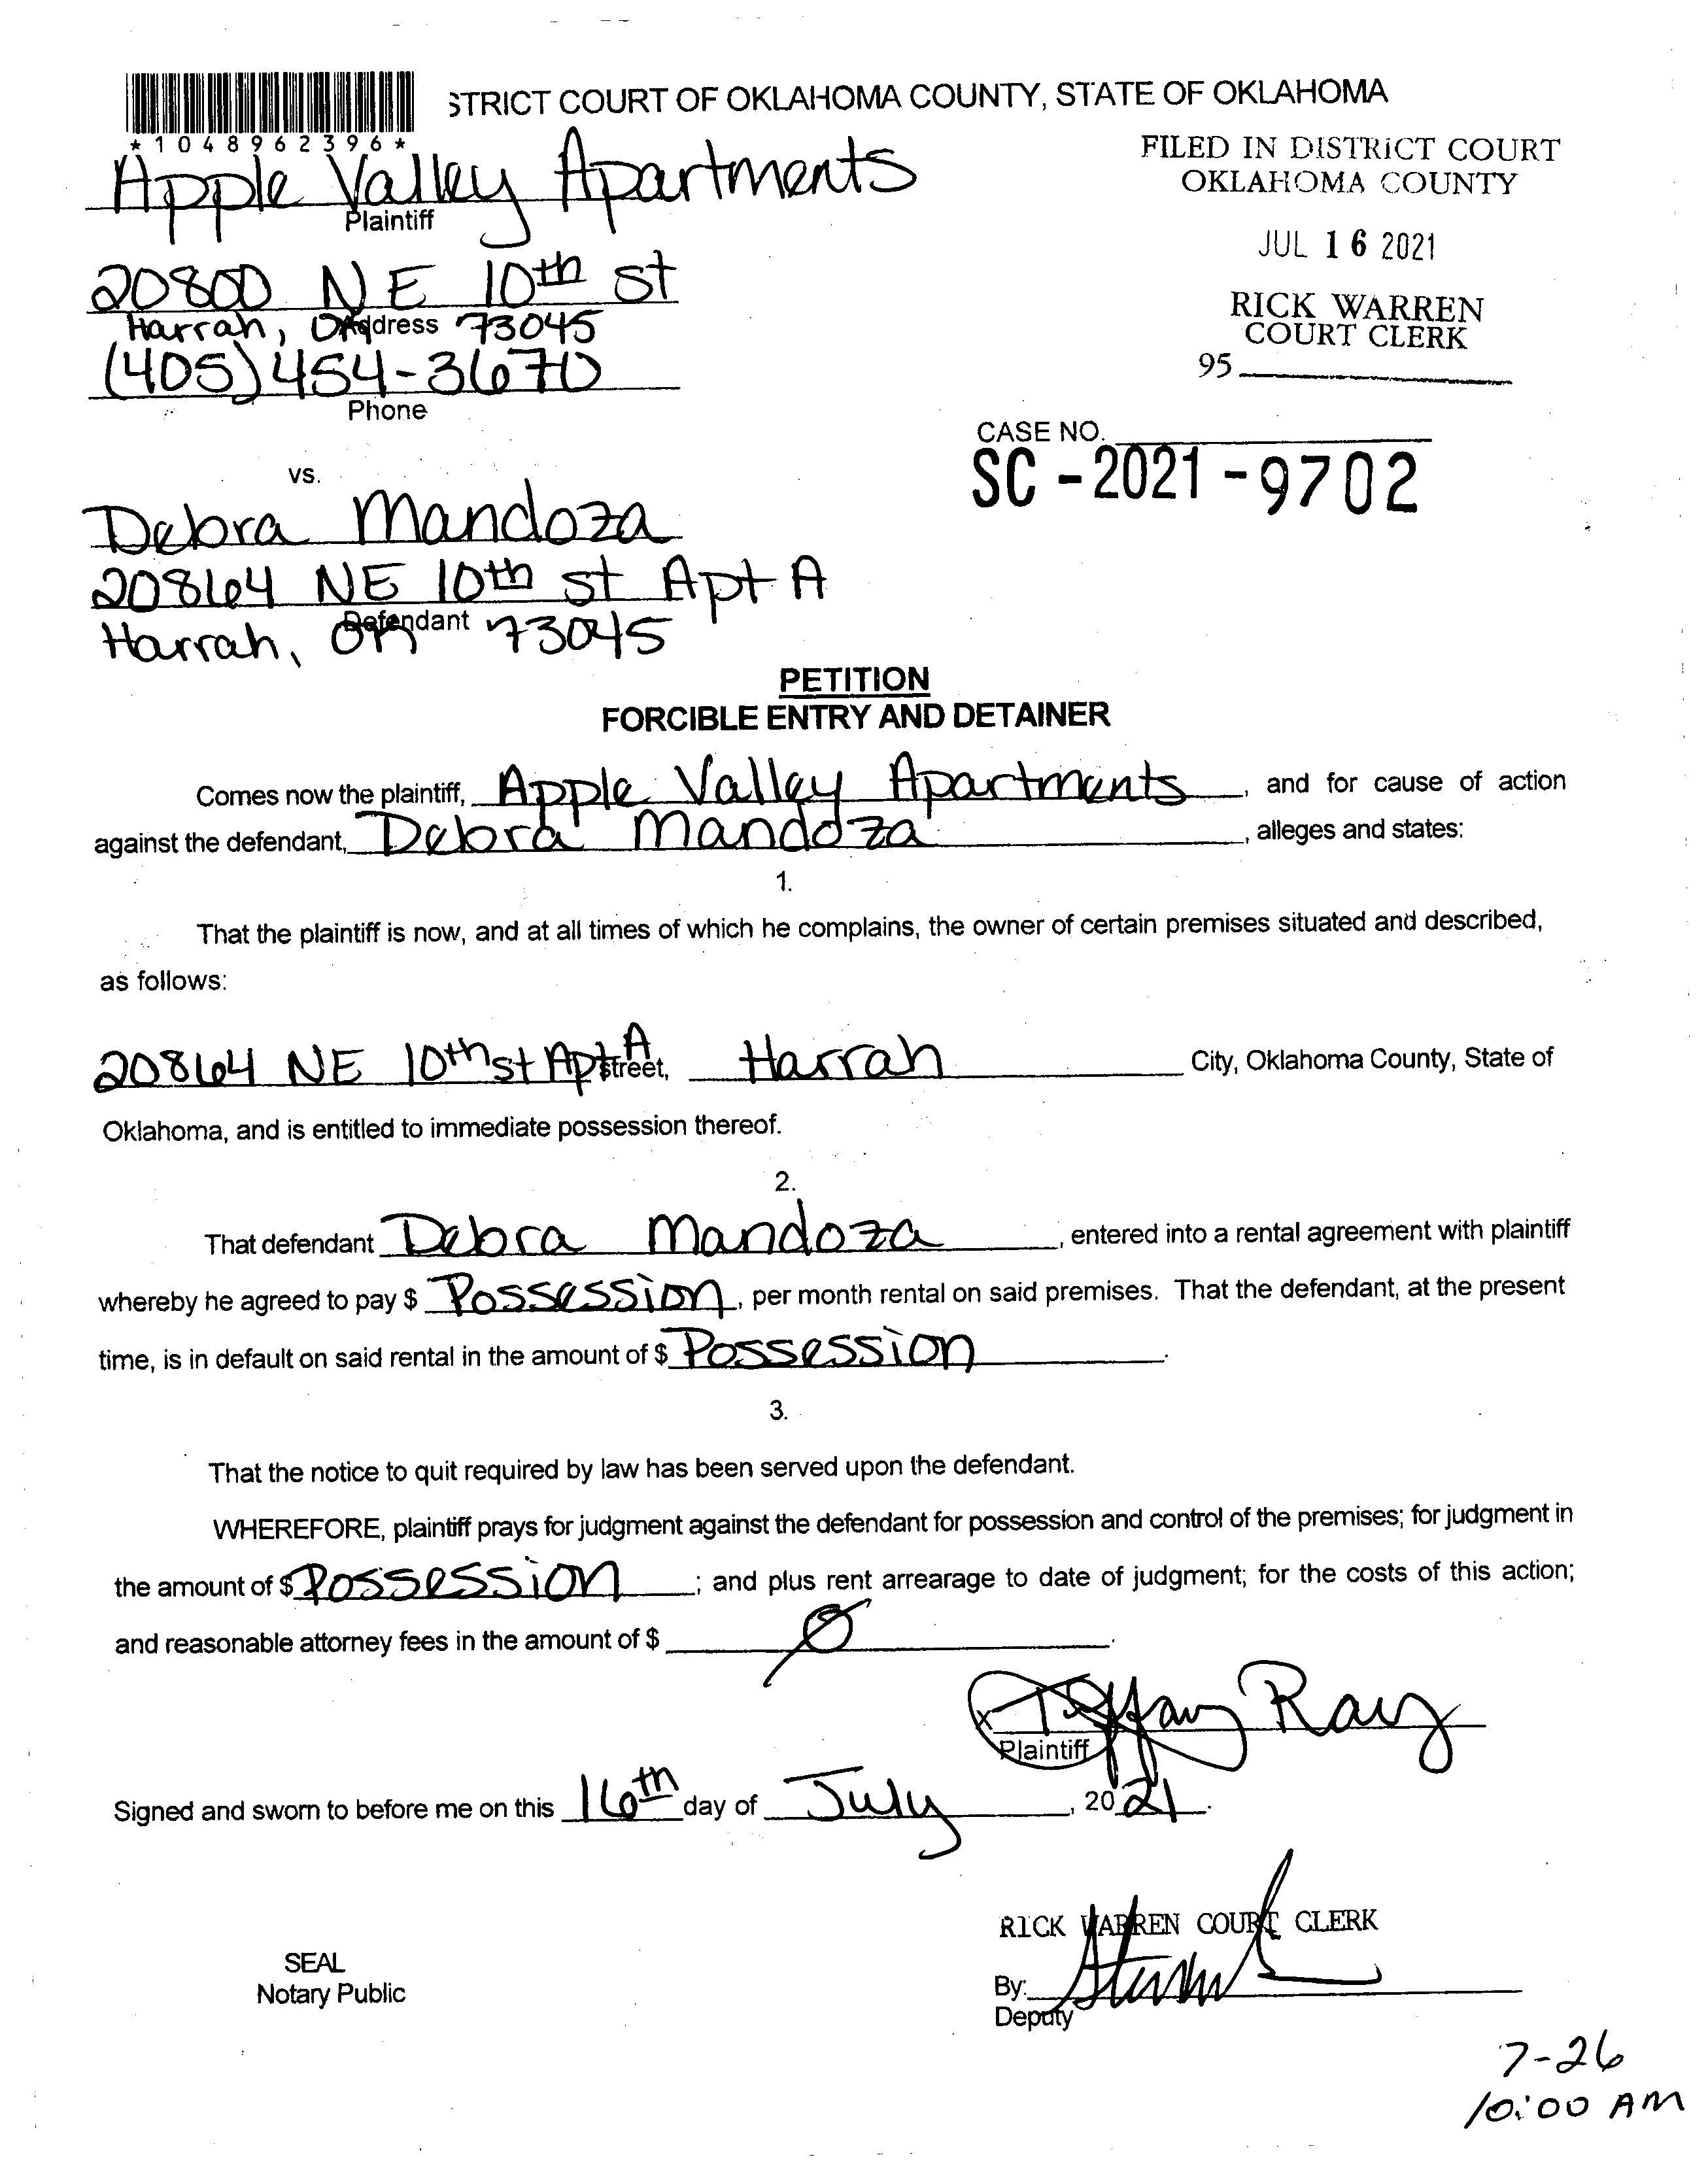 STRICT COURT OF OKLAHOMA COUNTY, STATE OF OKLAHOMA
*1048962396*
FILED IN DISTRICT COURT
OKLAHOMA COUNTY
JUL 16 2021
RICK WARREN
COURT CLERK
95
Apple Valley Apartments
Plaintiff
20800 NE 10th St
Harrah, OK 73045
Address
(405) 454-3670
Phone
CASE NO.
SC-2021-9702
vs.
Debra Mandoza
20864 NE 10th St Apt A
Defendant
Harrah, OK 73045
PETITION
FORCIBLE ENTRY AND DETAINER
Comes now the plaintiff, Apple Valley Apartments, and for cause of action
against the defendant, Debra Mandoza, alleges and states:
1.
That the plaintiff is now, and at all times of which he complains, the owner of certain premises situated and described,
as follows:
20864 NE 10th St Apt A Street, Harrah City, Oklahoma County, State of
Oklahoma, and is entitled to immediate possession thereof.
2.
That defendant Debra Mandoza, entered into a rental agreement with plaintiff
whereby he agreed to pay $ Possession, per month rental on said premises. That the defendant, at the present
time, is in default on said rental in the amount of $ Possession.
3.
That the notice to quit required by law has been served upon the defendant.
WHEREFORE, plaintiff prays for judgment against the defendant for possession and control of the premises; for judgment in
the amount of $ Possession; and plus rent arrearage to date of judgment; for the costs of this action;
and reasonable attorney fees in the amount of $ Ø.
x Tiffany Ray
Plaintiff
Signed and sworn to before me on this 16th day of July, 2021.
RICK WARREN COURT CLERK
SEAL
Notary Public
By:
Deputy
7-26
10:00 AM